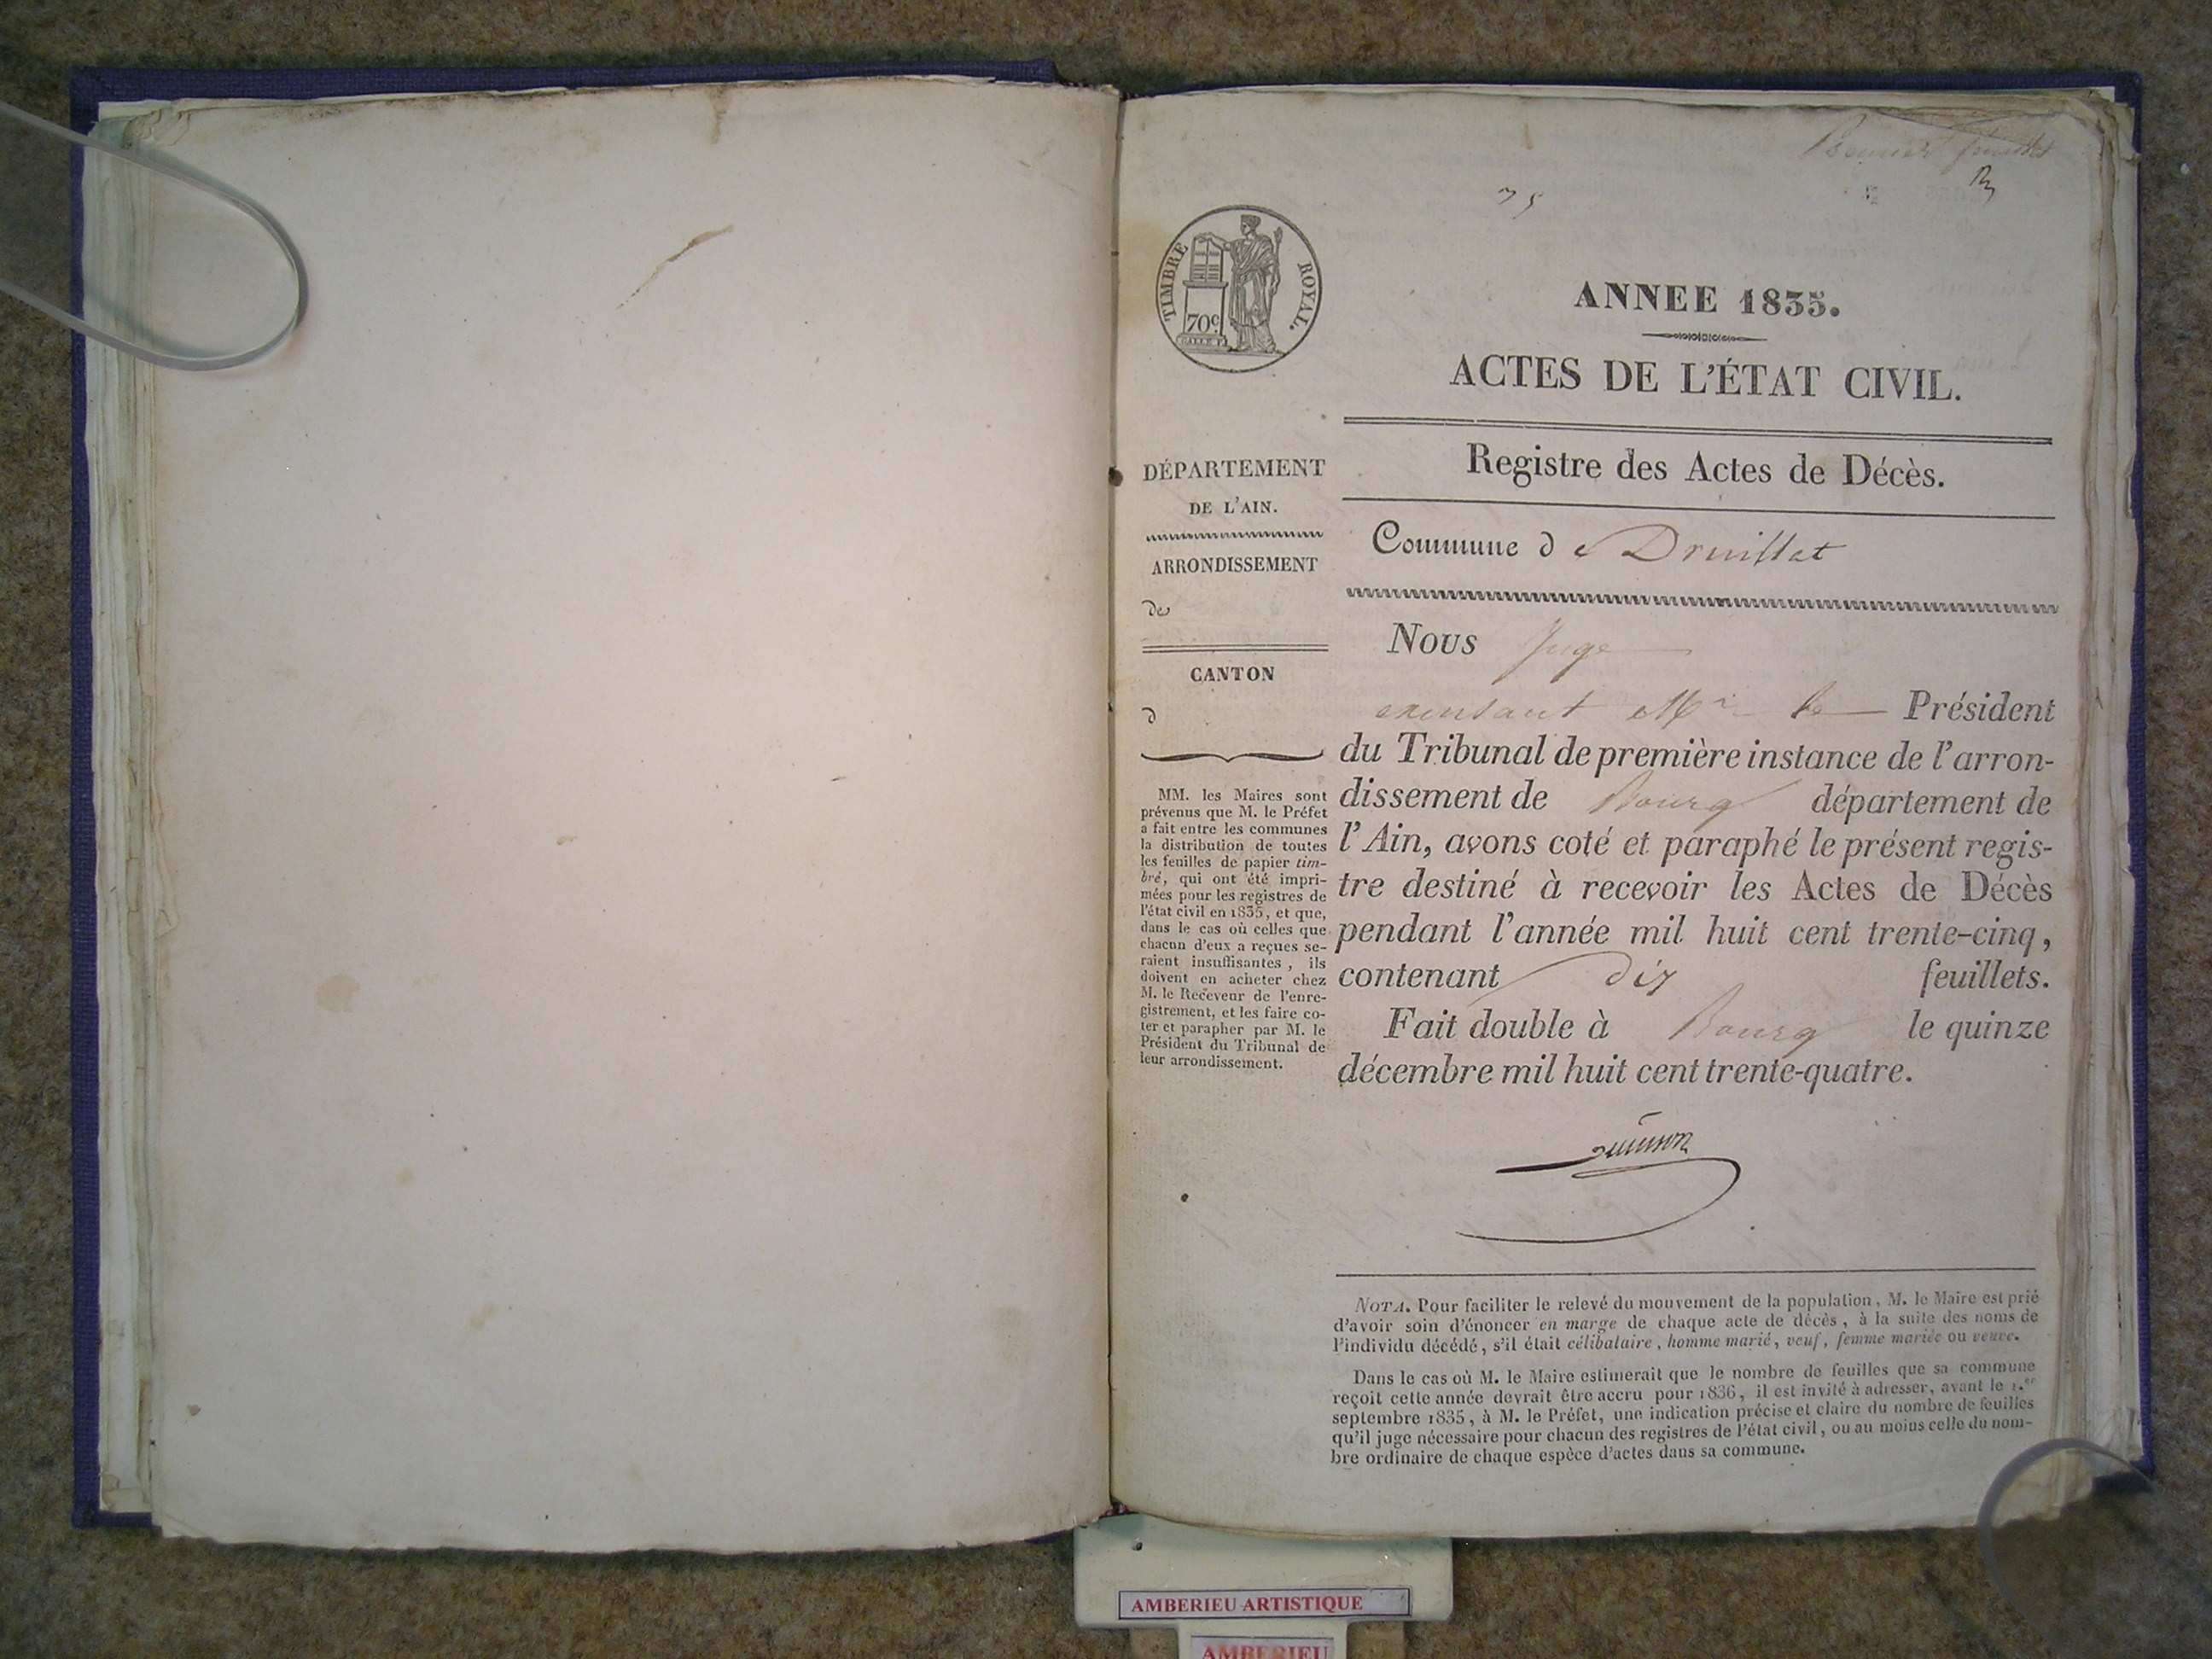 Premier feuillet
35
ANNEE 1835.
ACTES DE L'ÉTAT CIVIL.
TIMBRE ROYAL.
70c
DÉPARTEMENT
DE L'AIN.
ARRONDISSEMENT
de
CANTON
d
MM. les Maires sont
prévenus que M. le Préfet
a fait entre les communes
la distribution de toutes
les feuilles de papier tim-
bré, qui ont été impri-
mées pour les registres de
l'état civil en 1835, et que,
dans le cas où celles que
chacun d'eux a reçues se-
raient insuffisantes, ils
doivent en acheter chez
M. le Receveur de l'enre-
gistrement, et les faire co-
ter et parapher par M. le
Président du Tribunal de
leur arrondissement.
Registre des Actes de Décès.
Commune de Druillat
Nous Juge
Mr le Président
du Tribunal de première instance de l'arron-
dissement de Bourg département de
l'Ain, avons coté et paraphé le présent regis-
tre destiné à recevoir les Actes de Décès
pendant l'année mil huit cent trente-cinq,
contenant dix feuillets.
Fait double à Bourg le quinze
décembre mil huit cent trente-quatre.
NOTA. Pour faciliter le relevé du mouvement de la population, M. le Maire est prié
d'avoir soin d'énoncer en marge de chaque acte de décès, à la suite des noms de
l'individu décédé, s'il était célibataire, homme marié, veuf, femme mariée ou veuve.
Dans le cas où M. le Maire estimerait que le nombre de feuilles que sa commune
reçoit cette année devrait être accru pour 1836, il est invité à adresser, avant le 1.er
septembre 1835, à M. le Préfet, une indication précise et claire du nombre de feuilles
qu'il juge nécessaire pour chacun des registres de l'état civil, ou au moins celle du nom-
bre ordinaire de chaque espèce d'actes dans sa commune.
AMBERIEU ARTISTIQUE
AMBERIEU